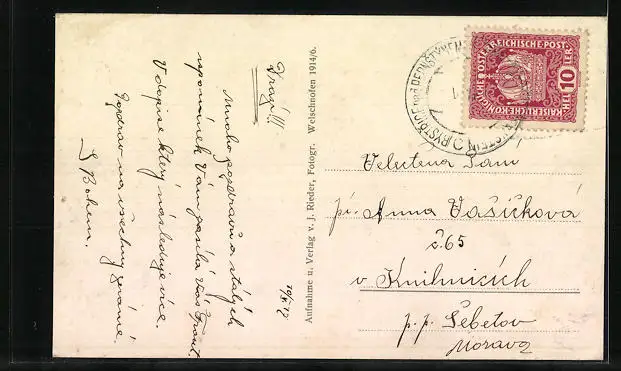 Drazí!!!
Mnoho pozdravů a stálých
vzpomínek Vám zasílá Váš
V dopise který následuje více.
Pozdrav na všechny známé.
S Bohem.
Aufnahme u. Verlag v. J. Rieder, Fotogr. Welschnofen 1914/6.
KAISERLICHE KÖNIGLICHE ÖSTERREICHISCHE POST
10
HELLER
BYSTŘICE nad PERNŠTÝNEM
Velectěná Paní
pí. Anna Vašíčková
č. 65
v Knihnicích
p. p. Šebetov
Morava